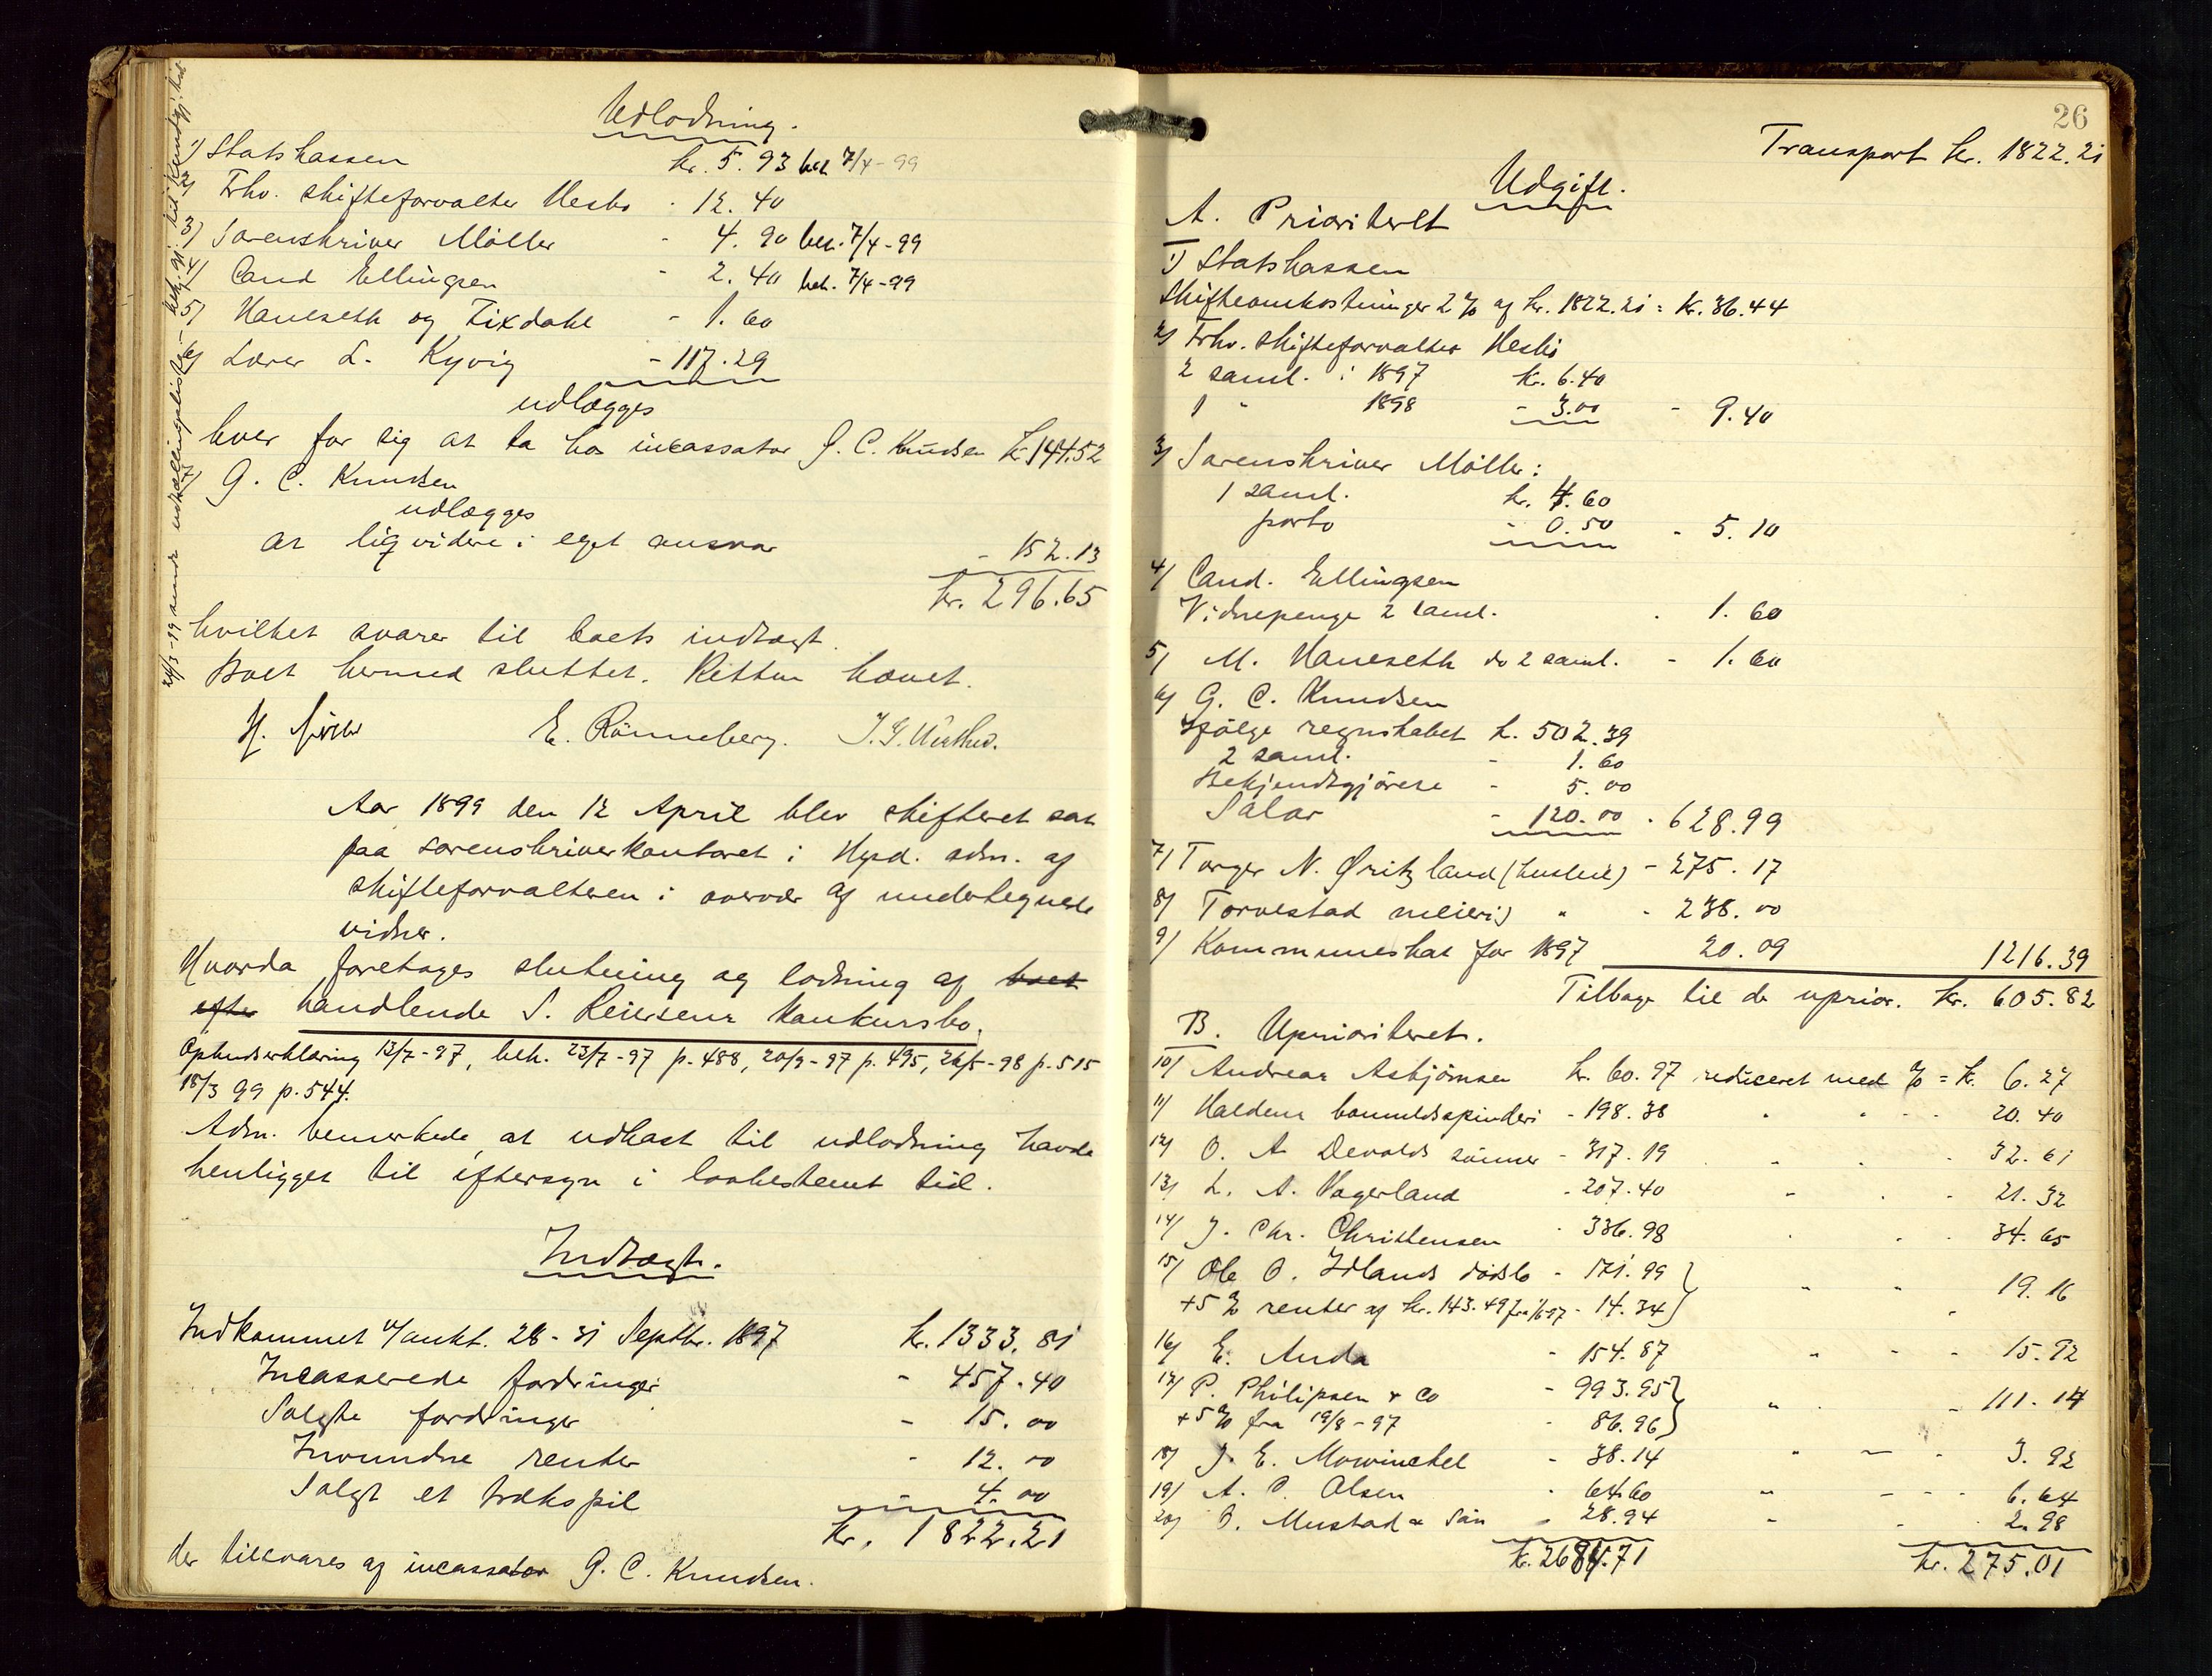 Udlodning.
1) Statskassen kr. 5.93 bet. 7/4-99
2) Frhv. skifteforvalter Hesbø - 12.40
3) Sorenskriver Möller - 4.90 bet. 7/4-99
4) Cand Ellingsen - 2.40 bet. 7/4-99
5) Haneseth og Tixdahl - 1.60
6) Lærer L. Kyvig - 117.29
udlægges
hver for sig at ta hos incassator G. C. Knudsen kr 144.52
7) G. C. Knudsen
udlægges
at liqvidere i eget ansvar - 152.13
kr. 296.65
hvilket svarer til boets indtægt.
Boet hermed sluttet. Retten hævet.
H. Möller E. Rönneberg. J. G.
Aar 1899 den 12 April blev skifteret sat
paa sorenskriverkontoret i Hgsd. adm. af
skifteforvalteren i overvær af undertegnede
vidner.
Hvorda foretoges slutning og lodning af boet
efter handlende S. Reiersens konkursbo.
Ophudserklæring 13/7-97, beh. 23/7-97 p. 488, 20/9-97 p. 495, 26/5-98 p. 515
18/3 99 p. 544.
Adm. bemerkede, at udkast til udlodning havde
henligget til eftersyn i lovbestemt tid.
Indtægt.
Indkommet v/aukt. 28-31 Septbr. 1897 kr. 1333.81
Incasserede fordringer - 457.40
Solgte fordringer - 15.00
Invundne renter - 12.00
Solgt et trækspil - 4.00
kr. 1822.21
der tilsvares af incassator G. C. Knudsen.
26
Transport kr. 1822.21
Udgift.
A. Prioriteret
1) Statskassen
Skifteomkostninger 2% af kr. 1822.21 = kr. 36.44
2) Frhv. skifteforvalter Hesbø
2 saml. i 1897 kr. 6.40
1 " 1898 - 3.00 - 9.40
3) Sorenskriver Möller:
1 saml. kr. 4.60
porto - 0.50 - 5.10
4) Cand. Ellingsen
Vidnepenge 2 saml. - 1.60
5) M. Haneseth do 2 saml. - 1.60
6) G. C. Knudsen
Ifølge regnskabet k. 502.39
2 saml. - 1.60
Bekjendtgjørelse - 5.00
Salær - 120.00 - 628.99
7) Torger N. Øritzland (husleie) - 275.17
8) Torvestad meieri) " - 238.00
9) Kommuneskat for 1897 20.09 1216.39
Tilbage til de uprior. kr. 605.82
B. Uprioriteret.
10) Andreas Asbjörnsen kr. 60.97 reduceret med % = kr. 6.27
11) Haldens bomuldsspinderi - 198.38 " " - - 20.40
12) O. A Devolds sönner - 317.19 " " - 32.61
13) L. A. Vagerland - 207.40 " " - 21.32
14) J. Chr. Christensen - 336.98 " " - 34.65
15) Ole O. Idlands dödsbo - 171.99 " " 19.16
+5% renter af kr. 143.49 fra 1/6 97 - 14.34
16) E. Anda - 154.87 " - - 15.92
17) P. Philipsen & Co - 993.95 " - 111.14
+5% fra 19/8-97 - 86.96
18) J. E. Mowinckel - 38.14 " - - 3.92
19) A. C. Olsen - 64.60 " - - - 6.64
20) O. Mustad & Sön - 28.94 " - 2.98
kr. 2684.71 kr. 275.01